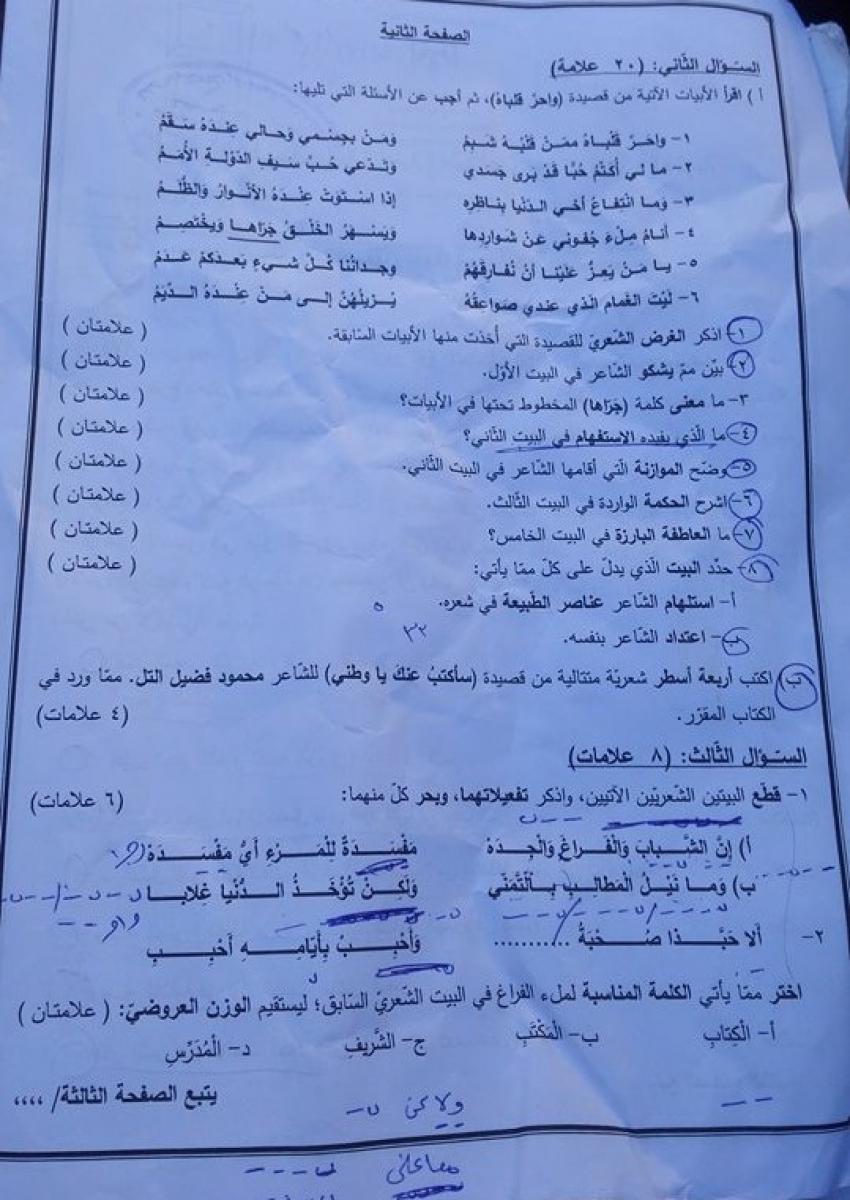 الصفحة الثانية
السؤال الثاني: (٢٠ علامة)
أ) اقرأ الأبيات الآتية من قصيدة (واحرّ قلباه)، ثم أجب عن الأسئلة التي تليها:
١- واحَرّ قَلْباهُ ممّنْ قَلْبُهُ شَبِمُ وَمَنْ بجِسْمي وَحالي عِندَهُ سَقَمُ
٢- ما لي أُكَتِّمُ حُبًّا قَدْ بَرى جَسَدي وَتَدّعي حُبّ سَيفِ الدّوْلةِ الأُمَمُ
٣- وَما انْتِفاعُ أخي الدّنْيا بِناظِرِه إذا اسْتَوَتْ عِنْدَهُ الأنْوارُ وَالظُّلَمُ
٤- أنامُ مِلْءَ جُفوني عَنْ شَوارِدِها وَيَسْهَرُ الخَلْقُ جَرّاها وَيَخْتَصِمُ
٥- يا مَنْ يَعِزُّ عَلَيْنا أنْ نُفارِقَهُمْ وِجدانُنا كُلَّ شيءٍ بَعدَكمْ عَدَمُ
٦- لَيْتَ الغَمامَ الذي عندي صَواعِقُهُ يُزيلُهُنّ إلى مَنْ عِنْدَهُ الدِّيَمُ
١- اذكر الغرض الشّعريّ للقصيدة التي أُخذت منها الأبيات السّابقة. ( علامتان )
٢- بيّن ممّ يشكو الشّاعر في البيت الأوّل. ( علامتان )
٣- ما معنى كلمة (جَرّاها) المخطوط تحتها في الأبيات؟ ( علامتان )
٤- ما الّذي يفيده الاستفهام في البيت الثّاني؟ ( علامتان )
٥- وضّح الموازنة الّتي أقامها الشّاعر في البيت الثّاني. ( علامتان )
٦- اشرح الحكمة الواردة في البيت الثّالث. ( علامتان )
٧- ما العاطفة البارزة في البيت الخامس؟ ( علامتان )
٨- حدّد البيت الّذي يدلّ على كلّ ممّا يأتي: ( علامتان )
أ- استلهام الشّاعر عناصر الطّبيعة في شعره.
ب- اعتداد الشّاعر بنفسه. ٣٢
ب) اكتب أربعة أسطر شعريّة متتالية من قصيدة (سأكتبُ عنكَ يا وطني) للشّاعر محمود فضيل التل. ممّا ورد في
الكتاب المقرّر. (٤ علامات)
السؤال الثّالث: (٨ علامات)
١- قطّع البيتين الشّعريّين الآتيين، واذكر تفعيلاتهما، وبحر كلّ منهما: (٦ علامات)
أ) إنّ الشّبابَ وَالْفَراغَ وَالْجِدَهْ مَفْسَدَةٌ لِلْمَرْءِ أيُّ مَفْسَدَهْ
ب) وَما نَيْلُ الْمَطالِبِ بِالتّمَنّي وَلَكِنْ تُؤْخَذُ الدُّنْيا غِلابا
٢- ألا حَبّذا صُحْبَةُ ........... وَأَحْبِبْ بِأَيّامِهِ أَحْبِبِ
اختر ممّا يأتي الكلمة المناسبة لملء الفراغ في البيت الشّعريّ السّابق؛ ليستقيم الوزن العروضيّ: ( علامتان )
أ- الْكِتابِ ب- الْمَكْتَبِ ج- الشَّريفِ د- الْمُدَرِّسِ
يتبع الصفحة الثالثة/ ،،،،
ولاكن